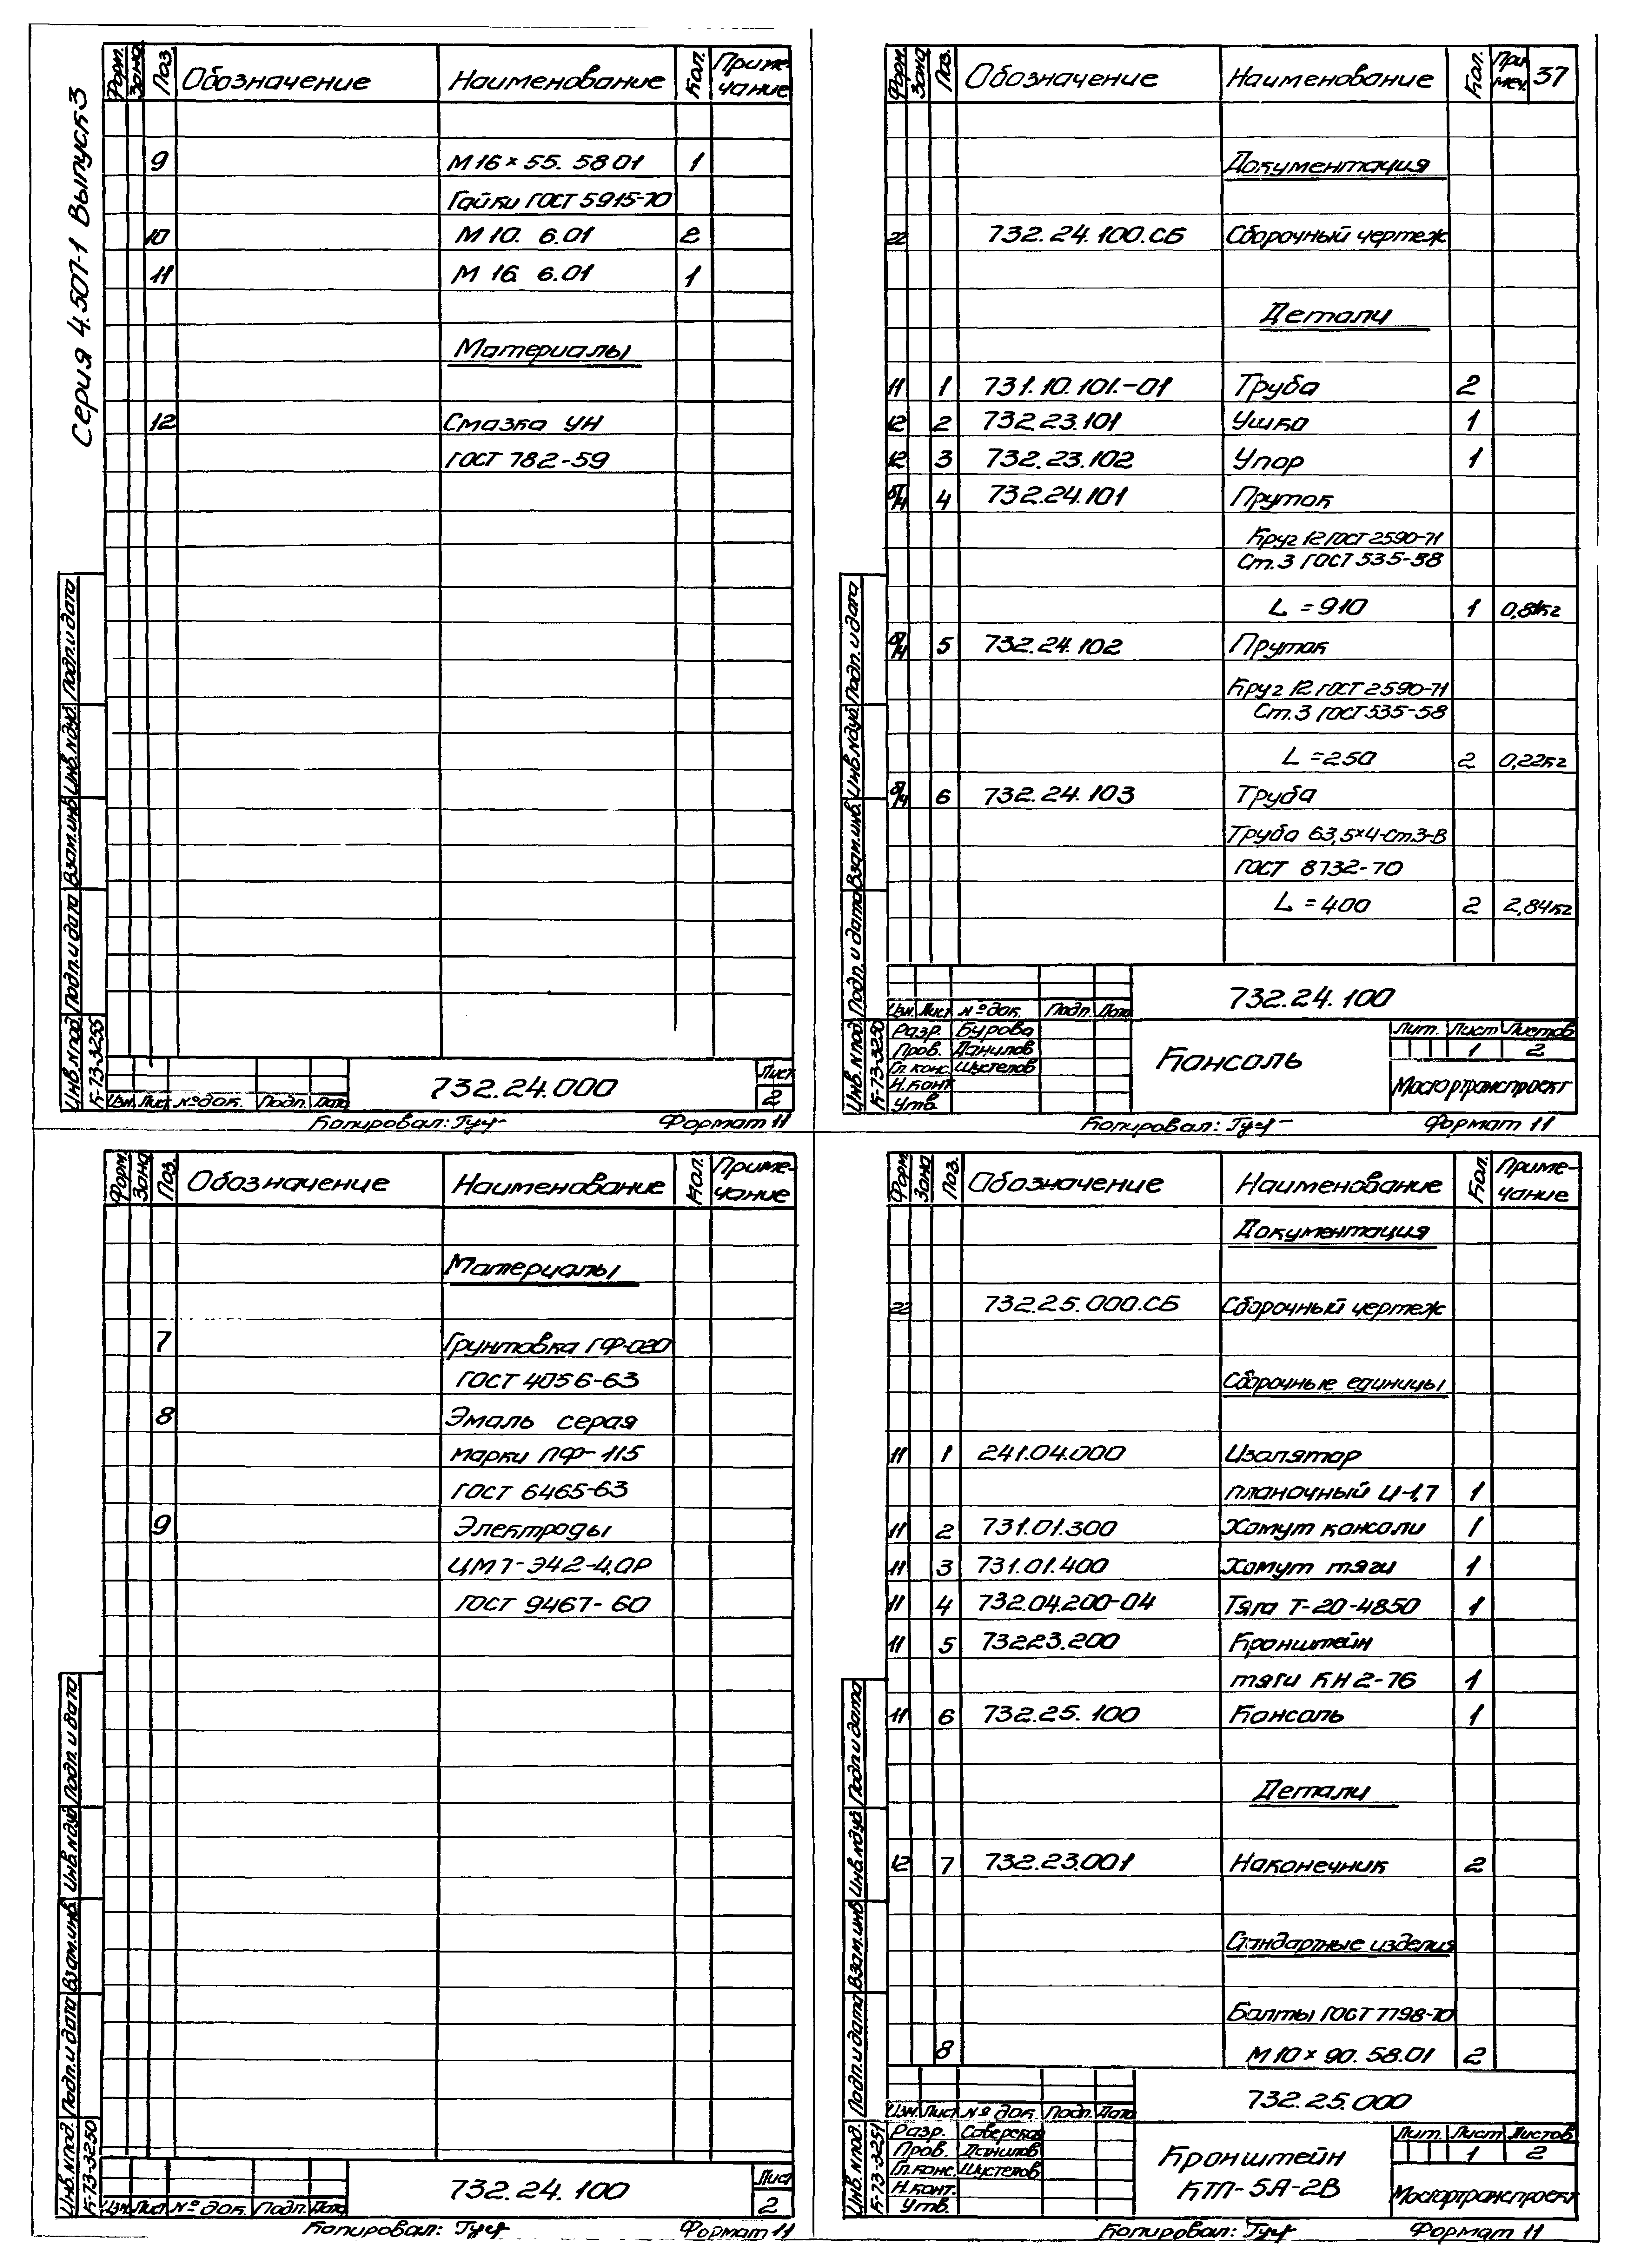 Серия 4.507-1 Выпуск 3
Форм. Зона Поз. Обозначение Наименование Кол. Приме-
чание
9 М16×55. 58 01 1
Гайки ГОСТ 5915-70
10 М 10. 6.01 2
11 М 16 6.01 1
Материалы
12 Смазка УН
ГОСТ 782-59
Инв.№под. Подп.и дата Взам.инв. Инв.№дуб. Подп.и дата
К-73-3255
732.24.000
Лист
2
Изм. Лист №док. Подп. Дата
Копировал: Гуч- Формат 11
Форм. Зона Поз. Обозначение Наименование Кол. При
меч. 37
Документация
22 732.24.100.СБ Сборочный чертеж
Детали
11 1 731.10.101.-01 Труба 2
12 2 732.23.101 Ушко 1
12 3 732.23.102 Упор 1
б/ч 4 732.24.101 Пруток
Круг 12 ГОСТ 2590-71
Ст.3 ГОСТ 535-58
L = 910 1 0,81кг
б/ч 5 732.24.102 Пруток
Круг 12 ГОСТ 2590-71
Ст.3 ГОСТ 535-58
L = 250 2 0,22кг
б/ч 6 732.24.103 Труба
Труба 63,5×4-Ст.3-В
ГОСТ 8732-70
L = 400 2 2,84кг
Инв.№под. Подп. и дата Взам.инв. Инв.№дуб. Подп.и дата
К-73-3250
732.24.100
Изм. Лист №док. Подп. Дата
Разр. Бурова
Пров. Данилов
Гл.конс. Шустелов
Н.конт.
Утв.
Консоль
Лит. Лист Листов
1 2
Мосгортранспроект
Копировал: Гуч- Формат 11
Форм. Зона Поз. Обозначение Наименование Кол. Приме-
чание
Материалы
7 Грунтовка ГФ-020
ГОСТ 4056-63
8 Эмаль серая
марки ПФ-115
ГОСТ 6465-63
9 Электроды
ЦМ7-Э42-4,0Р
ГОСТ 9467-60
Инв.№под. Подп.и дата Взам.инв. Инв.№дуб Подп. и дата
К-73-3250
732.24.100
Лист
2
Изм. Лист №док. Подп. Дата
Копировал: Гуч Формат 11
Форм. Зона Поз. Обозначение Наименование Кол. Приме-
чание
Документация
22 732.25.000.СБ Сборочный чертеж
Сборочные единицы
11 1 241.04.000 Изолятор
планочный И-1,7 1
11 2 731.01.300 Хомут консоли 1
11 3 731.01.400 Хомут тяги 1
11 4 732.04.200-04 Тяга Т-20-4850 1
11 5 732.23.200 Кронштейн
тяги КН2-76 1
11 6 732.25.100 Консоль 1
Детали
12 7 732.23.001 Наконечник 2
Стандартные изделия
Болты ГОСТ 7798-70
8 М10×90. 58.01 2
Инв.№под. Подп.и дата Взам.инв. Инв.№дуб Подп.и дата
К-73-3251
732.25.000
Изм. Лист №док. Подп. Дата
Разр. Саверская
Пров. Данилов
Гл.конс. Шустелов
Н.конт.
Утв.
Кронштейн
КТП-5А-2В
Лит. Лист Листов
1 2
Мосгортранспроект
Копировал: Гуч Формат 11